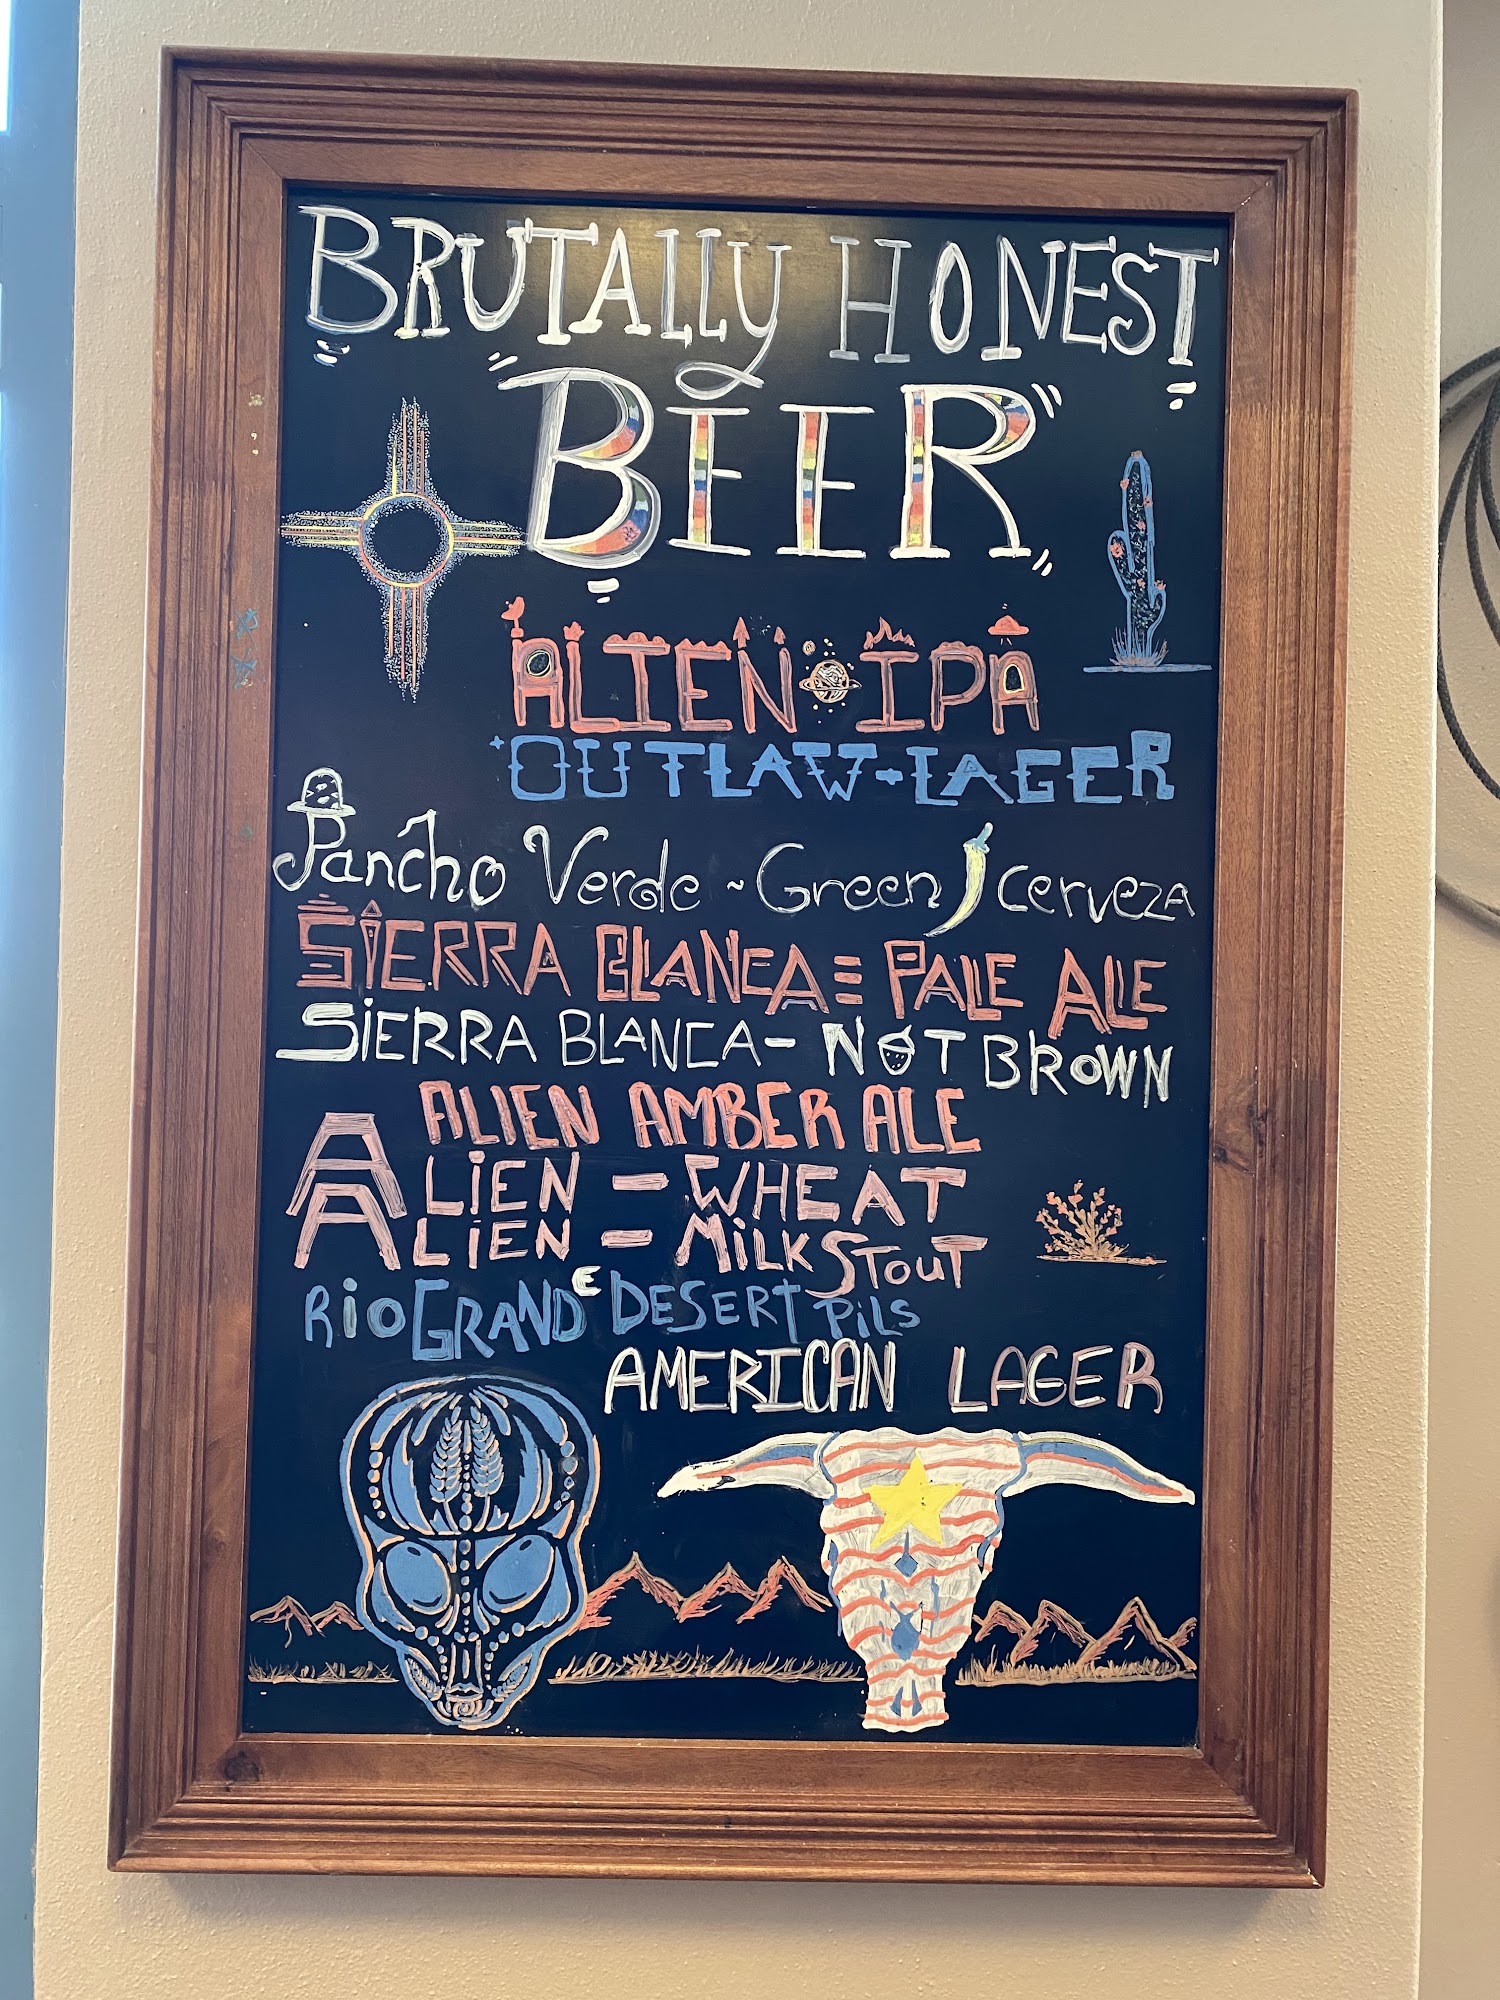 BRUTALLY HONEST
"BEER"
ALIEN IPA
OUTLAW-LAGER
Pancho Verde ~ Green cerveza
SIERRA BLANCA = PALE ALE
SIERRA BLANCA - NOT BROWN
ALIEN AMBER ALE
ALIEN - WHEAT
ALIEN - MILK STOUT
RIO GRANDE DESERT PILS
AMERICAN LAGER